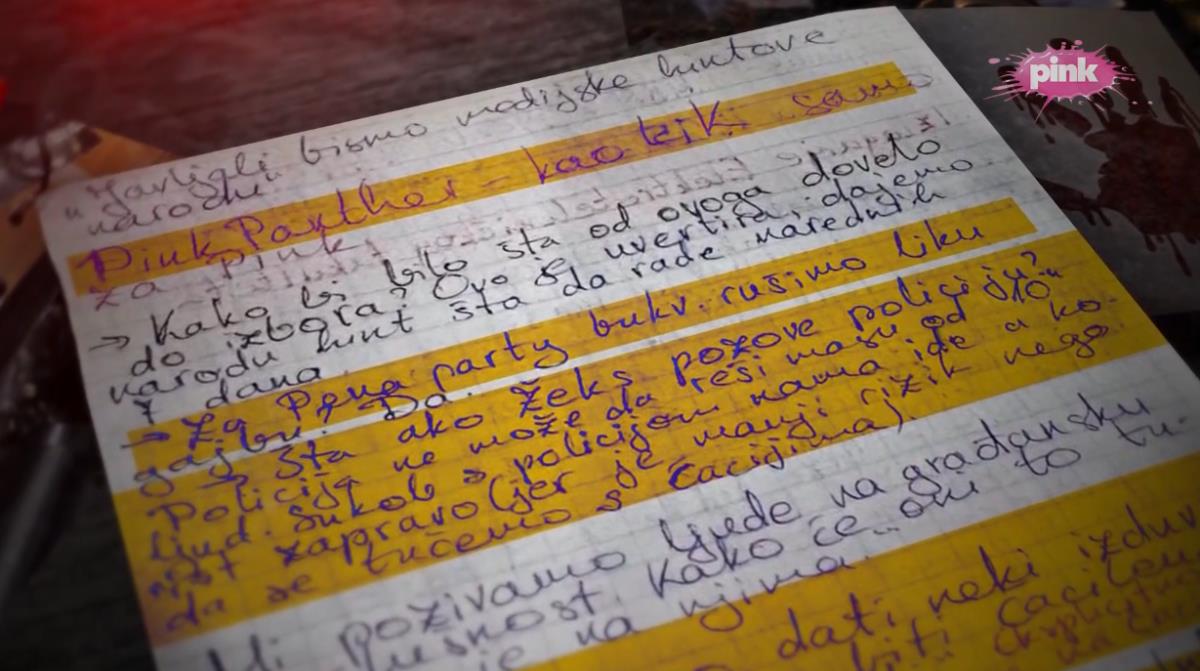 pink
"Javljali bismo medijske hintove
narodu"
Pink Panther - kao lik samo
za pink
→ Kako bi bilo šta od ovoga dovelo
do izbora? Ovo je uvertira, dajemo
narodu hint šta da rade narednih
7 dana
→ Za pena party bukv. rušimo liku
gajbu. Da.
→ Šta ako žeks pozove policiju?
Policija ne može da reši masu od
ljud. Sukob s policijom nama ide u ko-
rist zapravo (jer je manji rizik nego
da se tučemo s ćacijima)
pozivamo ljude na građansku
Kako će oni to tu-
na njima
dati neki izduv
biti